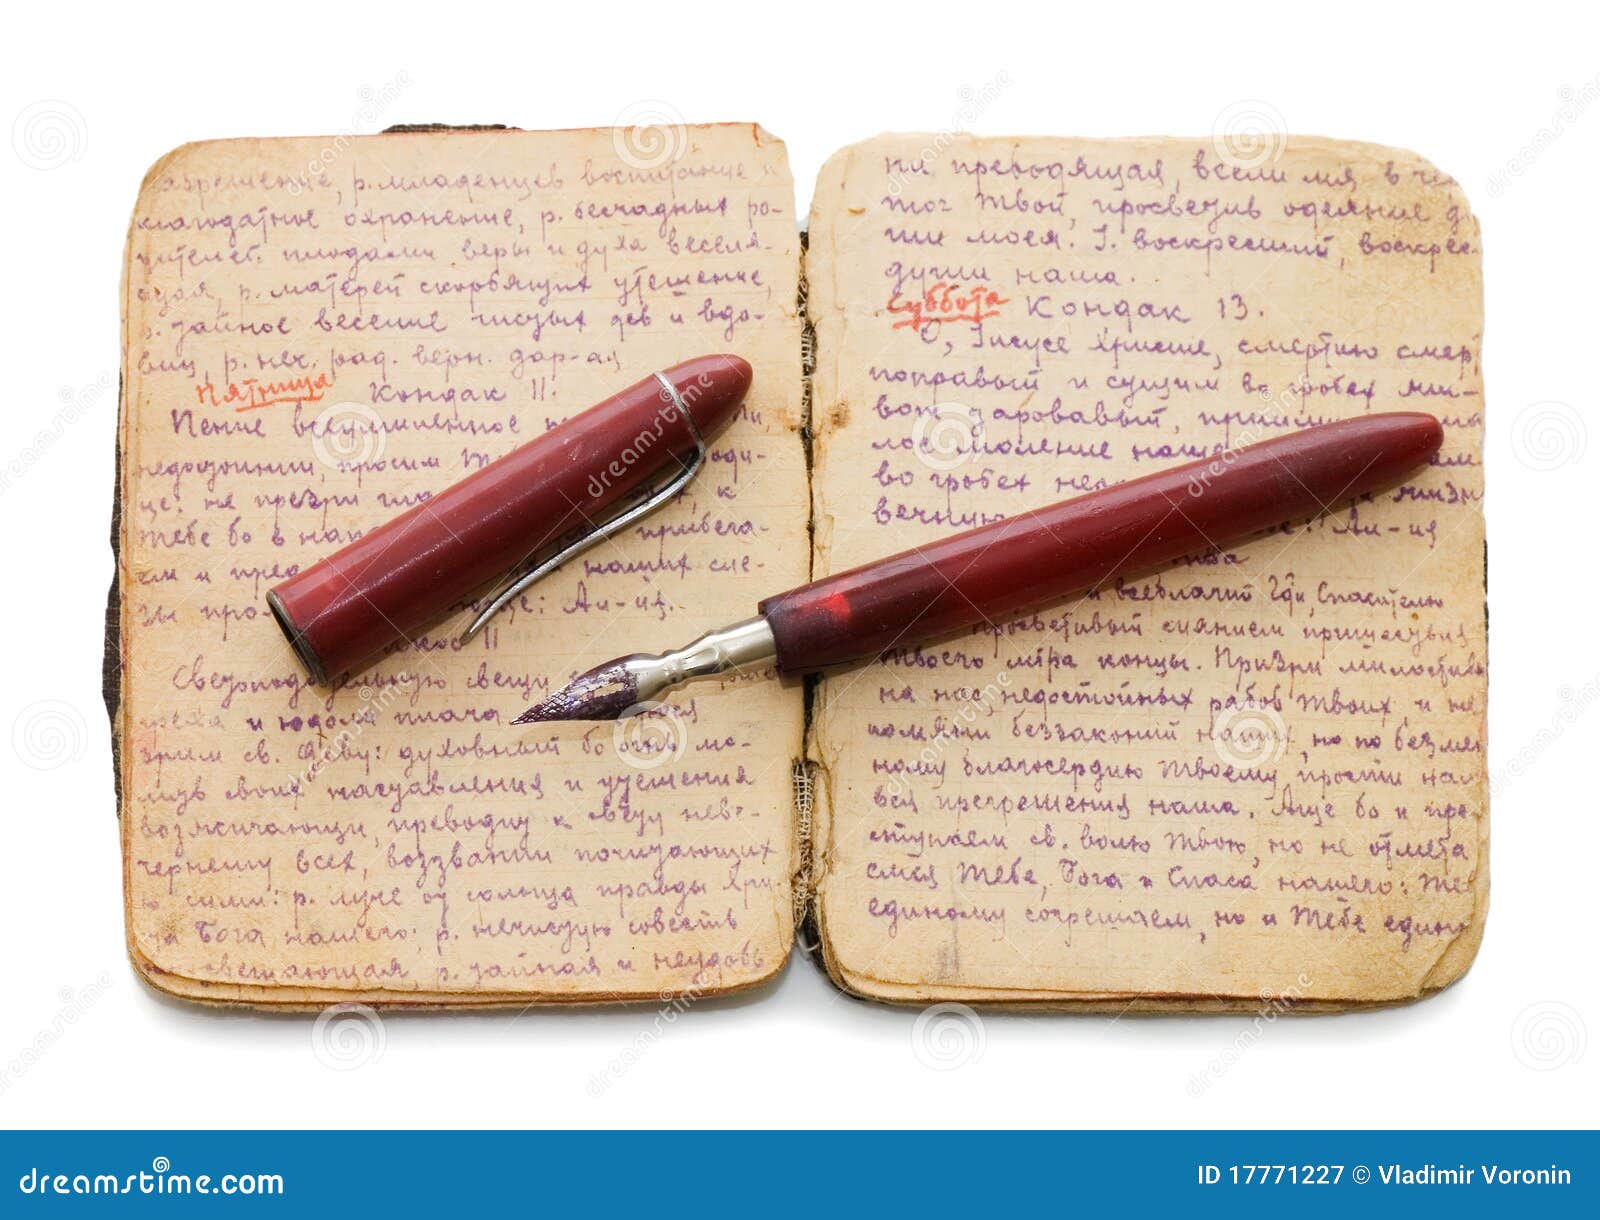 азрешение, р. младенцев воспитание и
благодатное охранение, р. бесчадных ро-
дителей плодами веры и духа веселя-
щая, р. матерей скорбящих утешение,
р. тайное веселие чистых дев и вдо-
виц, р. неч. рад. верн. дар-ая
Пятница Кондак 11.
Пение всеумиленное
недостойнии, просим Т
це: не презри гла к
Тебе бо в нап прибега-
ем и пред наших сле-
зы про юще: Ал-иа.
Икос 11
Светоподательную свещу
греха и юдоли плача
зрим св. Деву: духовный бо огнь мо-
литв своих наставления и утешения
возжигающи, преводиш к свету неве-
чернему всех, воззвании почитающих
р. луче от солнца правды Хри-
ста Бога нашего; р. нечистую совесть
свещающая, р. тайная и неудобь
ни преводящая, весели мя, в чер-
тог Твой, просветив одеяние ду-
ши моея. I. воскресший, воскрес
души наша.
Суббота Кондак 13.
О, Iисусе Христе, смертию смерт
поправый и сущим во гробех жи-
вот даровавый, приими ма
лое моление наше
во гробех
вечную Ал-иа
тва
всеблагий Гди, Спасителю
просветивый сиянием пришествия
Твоего мира концы. Призри милостиво
на нас, недостойных рабов Твоих, и не
помяни беззаконий наших, но по безмер
ному благосердию Твоему прости нам
вся прегрешения наша. Аще бо и пре-
ступаем св. волю Твою, но не отмета
емся Тебе, Бога и Спаса нашего: Тебе
единому согрешаем, но и Тебе едино
dreamstime.com
ID 17771227 © Vladimir Voronin